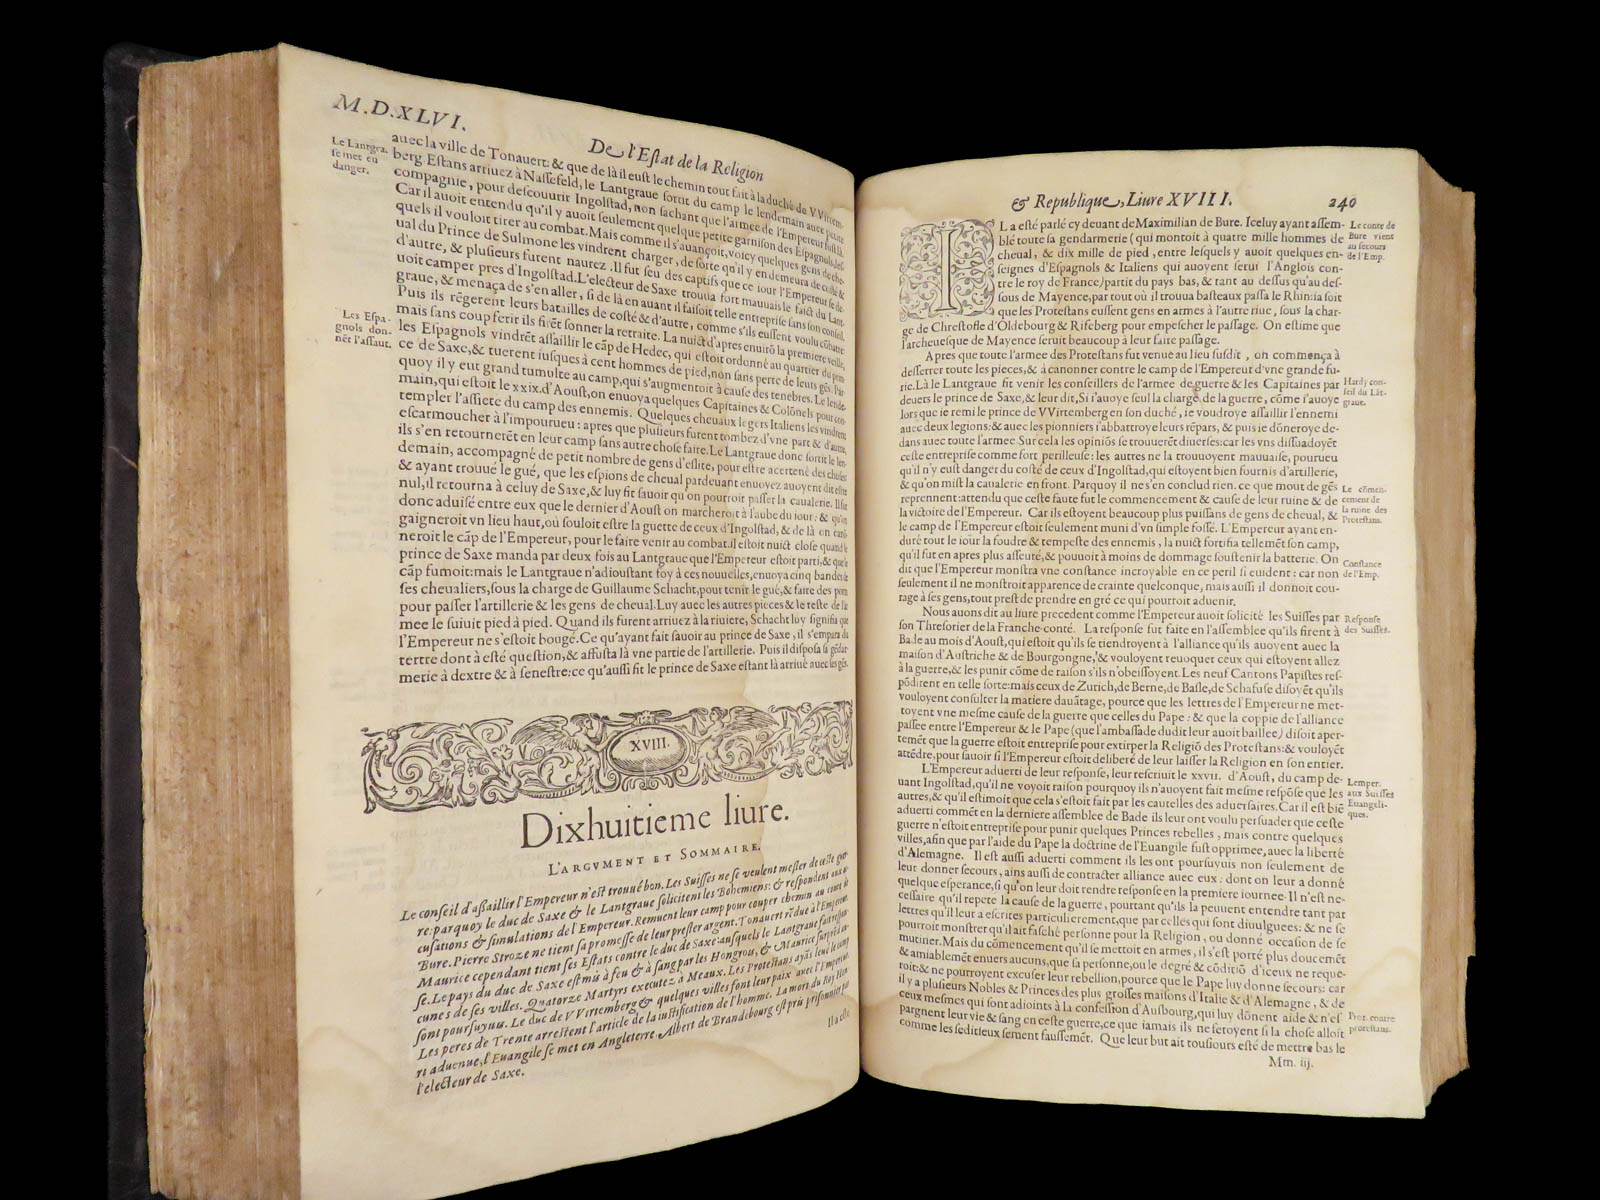 M.D.XLVI.
De l'Eſtat de la Religion
Le Lantgra.
ſe met en
danger.
auec la ville de Tonauert: & que de là il euſt le chemin tout fait à la duché de VVirtem-
berg Eſtans arriuez à Naſſefeld, le Lantgraue ſortit du camp le lendemain auec petite
compagnie, pour deſcouurir Ingolſtad, non ſachant que l'armee de l'Empereur fuſt là.
Car il auoit entendu qu'il y auoit ſeulement quelque petite garniſon des Eſpagnols, deſ-
quels il vouloit tirer au combat. Mais comme il s'auançoit, voicy quelques gens de che-
ual du Prince de Sulmone les vindrent charger, de ſorte qu'il y en demeura de coſté &
d'autre, & pluſieurs furent naurez. Il fut ſeu des captifs que ce iour l'Empereur ſe de-
uoit camper pres d'Ingolſtad. L'electeur de Saxe trouua fort mauuais le faict du Lant-
graue, & menaça de s'en aller, ſi de là en auant il faiſoit telle entrepriſe ſans ſon conſeil.
Puis ils rēgerent leurs batailles de coſté & d'autre, comme s'ils euſſent voulu cōbatre
mais ſans coup ferir ils firēt ſonner la retraite. La nuict d'apres enuirō la premiere veille,
Les Eſpa-
gnols don-
nēt l'aſſaut.
les Eſpagnols vindrēt aſſaillir le cāp de Hedec, qui eſtoit ordonné au quartier du prin-
ce de Saxe, & tuerent iuſques à cent hommes de pied, non ſans perte de leurs gēs. Par-
quoy il y eut grand tumulte au camp, qui s'augmentoit à cauſe des tenebres. Le lende-
main, qui eſtoit le xxix. d'Aouſt, on enuoya quelques Capitaines & Colōnels pour con-
templer l'aſſiete du camp des ennemis. Quelques cheuaux legers Italiens les vindrent
eſcarmoucher à l'impourueu: apres que pluſieurs furent tombez d'vne part & d'autre,
ils s'en retournerēt en leur camp ſans autre choſe faire. Le Lantgraue donc ſortit le len-
demain, accompagné de petit nombre de gens d'eſlite, pour eſtre acertené des choſes
& ayant trouué le gué, que les eſpions de cheual pardeuant enuoyez auoyent dit eſtre
nul, il retourna à celuy de Saxe, & luy fit ſauoir qu'on pourroit paſſer la caualerie. Il fut
donc aduiſé entre eux que le dernier d'Aouſt on marcheroit à l'aube du iour: & qu'on
gaigneroit vn lieu haut, où ſouloit eſtre la guette de ceux d'Ingolſtad, & de là on canō-
neroit le cāp de l'Empereur, pour le faire venir au combat. il eſtoit nuict cloſe quand le
prince de Saxe manda par deux fois au Lantgraue que l'Empereur eſtoit parti, & que le
cāp fumoit: mais le Lantgraue n'adiouſtant foy à ces nouuelles, enuoya cinq bandes de
ſes cheualiers, ſous la charge de Guillaume Schacht, pour tenir le gué, & faire des pons
pour paſſer l'artillerie & les gens de cheual. Luy auec les autres pieces & le reſte de l'ar
mee le ſuiuit pied à pied. Quand ils furent arriuez à la riuiere, Schacht luy ſignifia que
l'Empereur ne s'eſtoit bougé. Ce qu'ayant fait ſauoir au prince de Saxe, il s'empara du
tertre dont à eſté queſtion, & affuſta là vne partie de l'artillerie. Puis il diſpoſa ſa gēdar
merie à dextre & à ſeneſtre: ce qu'auſſi fit le prince de Saxe eſtant là arriué auec les gēs.
XVIII.
Dixhuitieme liure.
L'ARGVMENT ET SOMMAIRE.
Le conſeil d'aſſaillir l'Empereur n'eſt trouué bon. Les Suiſſes ne ſe veulent meſler de ceſte guer-
re: parquoy le duc de Saxe & le Lantgraue ſolicitent les Bohemiens: & reſpondent aux ac-
cuſations & ſimulations de l'Empereur. Remuent leur camp pour couper chemin au conte de
Bure. Pierre Stroze ne tient ſa promeſſe de leur preſter argent. Tonauert rēdue à l'Empereur.
Maurice cependant tient ſes Eſtats contre le duc de Saxe: auſquels le Lantgraue fait reſpon-
ſe. Le pays du duc de Saxe eſt mis à feu & à ſang par les Hongrois, & Maurice ſurprēd au-
cunes de ſes villes. Quatorze Martyrs executez à Meaux. Les Proteſtans ayās leué le camp
ſont pourſuyuis. Le duc de VVirtemberg & quelques villes font leur paix auec l'Empereur.
Les peres de Trente arreſtent l'article de la iuſtification de l'homme. La mort du Roy Hen
ri aduenue, l'Euangile ſe met en Angleterre. Albert de Brandebourg eſt pris priſonnier par
l'electeur de Saxe.
Il a eſté
& Republique, Liure XVIII.
240
IL a eſté parlé cy deuant de Maximilian de Bure. Iceluy ayant aſſem-
blé toute ſa gendarmerie (qui montoit à quatre mille hommes de
cheual, & dix mille de pied, entre leſquels y auoit quelques en-
ſeignes d'Eſpagnols & Italiens qui auoyent ſerui l'Anglois con-
tre le roy de France) partit du pays bas, & tant au deſſus qu'au deſ-
ſous de Mayence, par tout où il trouua baſteaux paſſa le Rhin: ia ſoit
que les Proteſtans euſſent gens en armes à l'autre riue, ſous la char-
ge de Chreſtofle d'Oldebourg & Rifeberg pour empeſcher le paſſage. On eſtime que
l'archeueſque de Mayence ſeruit beaucoup à leur faire paſſage.
Le conte de
Bure vient
au ſecours
de l'Emp.
Apres que toute l'armee des Proteſtans fut venue au lieu ſuſdit, on commença à
deſſerrer toute les pieces, & à canonner contre le camp de l'Empereur d'vne grande fu-
rie. Là le Lantgraue fit venir les conſeillers de l'armee de guerre & les Capitaines par
deuers le prince de Saxe, & leur dit, Si i'auoye ſeul la charge de la guerre, cōme i'auoye
lors que ie remi le prince de VVirtemberg en ſon duché, ie voudroye aſſaillir l'ennemi
auec deux legions: & auec les pionniers i'abbattroye leurs rēpars, & puis ie dōneroye de-
dans auec toute l'armee. Sur cela les opiniōs ſe trouuerēt diuerſes: car les vns diſſuadoyēt
ceſte entrepriſe comme fort perilleuſe: les autres ne la trouuoyent mauuaiſe, pourueu
qu'il n'y euſt danger du coſté de ceux d'Ingolſtad, qui eſtoyent bien fournis d'artillerie,
& qu'on miſt la caualerie en front. Parquoy il ne s'en conclud rien. ce que mout de gēs
reprennent: attendu que ceſte faute fut le commencement & cauſe de leur ruine & de
la victoire de l'Empereur. Car ils eſtoyent beaucoup plus puiſſans de gens de cheual, &
le camp de l'Empereur eſtoit ſeulement muni d'vn ſimple foſſé. L'Empereur ayant en-
duré tout le iour la foudre & tempeſte des ennemis, la nuict fortifia tellemēt ſon camp,
qu'il fut en apres plus aſſeuré, & pouuoit à moins de dommage ſouſtenir la batterie. On
dit que l'Empereur monſtra vne conſtance incroyable en ce peril ſi euident: car non
ſeulement il ne monſtroit apparence de crainte quelconque, mais auſſi il donnoit cou-
rage à ſes gens, tout preſt de prendre en gré ce qui pourroit aduenir.
Hardy con-
ſeil du Lāt-
graue.
Le cōmen-
cement de
la ruine des
Proteſtans.
Conſtance
de l'Emp.
Nous auons dit au liure precedent comme l'Empereur auoit ſolicité les Suiſſes par
ſon Threſorier de la Franche-conté. La reſponſe fut faite en l'aſſemblee qu'ils firent à
Bade au mois d'Aouſt, qui eſtoit qu'ils ſe tiendroyent à l'alliance qu'ils auoyent auec la
maiſon d'Auſtriche & de Bourgongne, & vouloyent reuoquer ceux qui eſtoyent allez
à la guerre, & les punir cōme de raiſon s'ils n'obeiſſoyent. Les neuf Cantons Papiſtes reſ-
pōdirent en telle ſorte: mais ceux de Zurich, de Berne, de Baſle, de Schafuſe diſoyēt qu'ils
vouloyent conſulter la matiere dauātage, pource que les lettres de l'Empereur ne met-
toyent vne meſme cauſe de la guerre que celles du Pape: & que la coppie de l'alliance
paſſee entre l'Empereur & le Pape (que l'ambaſſade dudit leur auoit baillee) diſoit aper-
temēt que la guerre eſtoit entrepriſe pour extirper la Religiō des Proteſtans: & vouloyēt
attēdre, pour ſauoir ſi l'Empereur eſtoit deliberé de leur laiſſer la Religion en ſon entier.
Reſponſe
des Suiſſes.
L'Empereur aduerti de leur reſponſe, leur reſcriuit le xxvii. d'Aouſt, du camp de-
uant Ingolſtad, qu'il ne voyoit raiſon pourquoy ils n'auoyent fait meſme reſpōſe que les
autres, & qu'il eſtimoit que cela s'eſtoit fait par les cautelles des aduerſaires. Car il eſt biē
aduerti commēt en la derniere aſſemblee de Bade ils leur ont voulu perſuader que ceſte
guerre n'eſtoit entrepriſe pour punir quelques Princes rebelles, mais contre quelques
villes, afin que par l'aide du Pape la doctrine de l'Euangile fuſt opprimee, auec la liberté
d'Alemagne. Il eſt auſſi aduerti comment ils les ont pourſuyuis non ſeulement de
leur donner ſecours, ains auſſi de contracter alliance auec eux: dont on leur a donné
quelque eſperance, ſi qu'on leur doit rendre reſponſe en la premiere iournee. Il n'eſt ne-
ceſſaire qu'il repete la cauſe de la guerre, pourtant qu'ils la peuuent entendre tant par
lettres qu'il leur a eſcrites particulierement, que par celles qui ſont diuulguees: & ne ſe
pourroit monſtrer qu'il ait faſché perſonne pour la Religion, ou donné occaſion de ſe
mutiner. Mais du cōmencement qu'il ſe mettoit en armes, il s'eſt porté plus doucemēt
& amiablement enuers aucuns, que ſa perſonne, ou le degré & cōditiō d'iceux ne reque-
roit: & ne pourroyent excuſer leur rebellion, pource que le Pape luy donne ſecours: car
il y a pluſieurs Nobles & Princes des plus groſſes maiſons d'Italie & d'Alemagne, & de
ceux meſmes qui ſont adioints à la confeſſion d'Auſbourg, qui luy dōnent aide & n'eſ
pargnent leur vie & ſang en ceſte guerre, ce que iamais ils ne feroyent ſi la choſe alloit
comme les ſeditieux ſement fauſſemēt. Que leur but ait touſiours eſté de mettre bas le
Lemper.
aux Suiſſes
Euangeli-
ques.
Prot. contre
proteſtans.
Mm. iij.